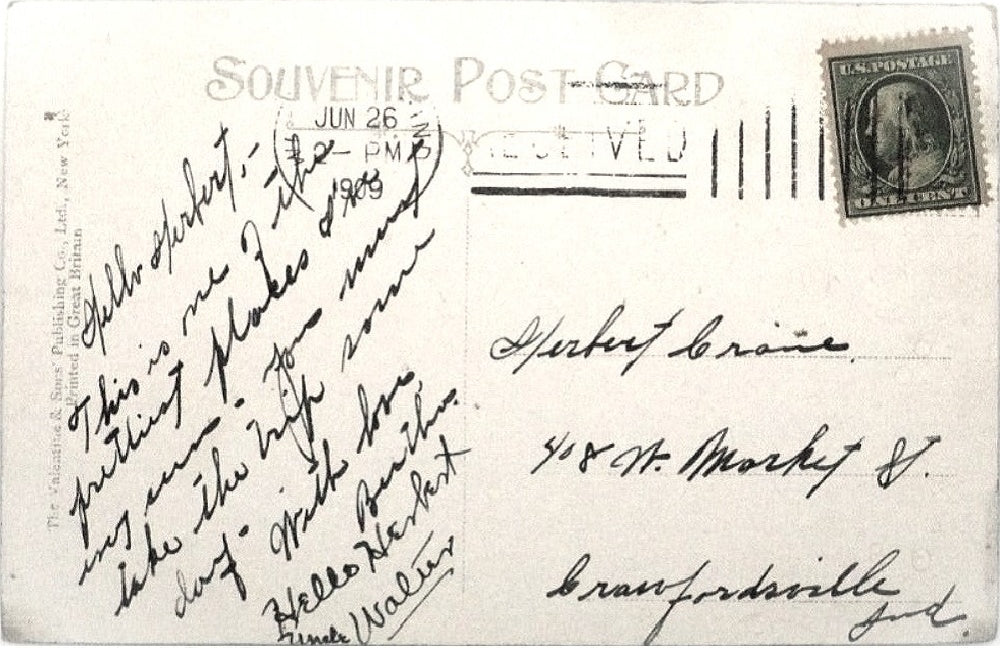 SOUVENIR POST CARD
JUN 26
2- PM
1909
RECEIVED
U.S. POSTAGE
ONE CENT
The Valentine & Sons' Publishing Co., Ltd., New York
Printed in Great Britain
Hello Herbert,-
This is one of the
prettiest places I've
ever seen. You must
take the trip some
day. With love,
Bertha.
Hello Herbert
Uncle Walter
Herbert Craine
408 W. Market St.
Crawfordsville
Ind.